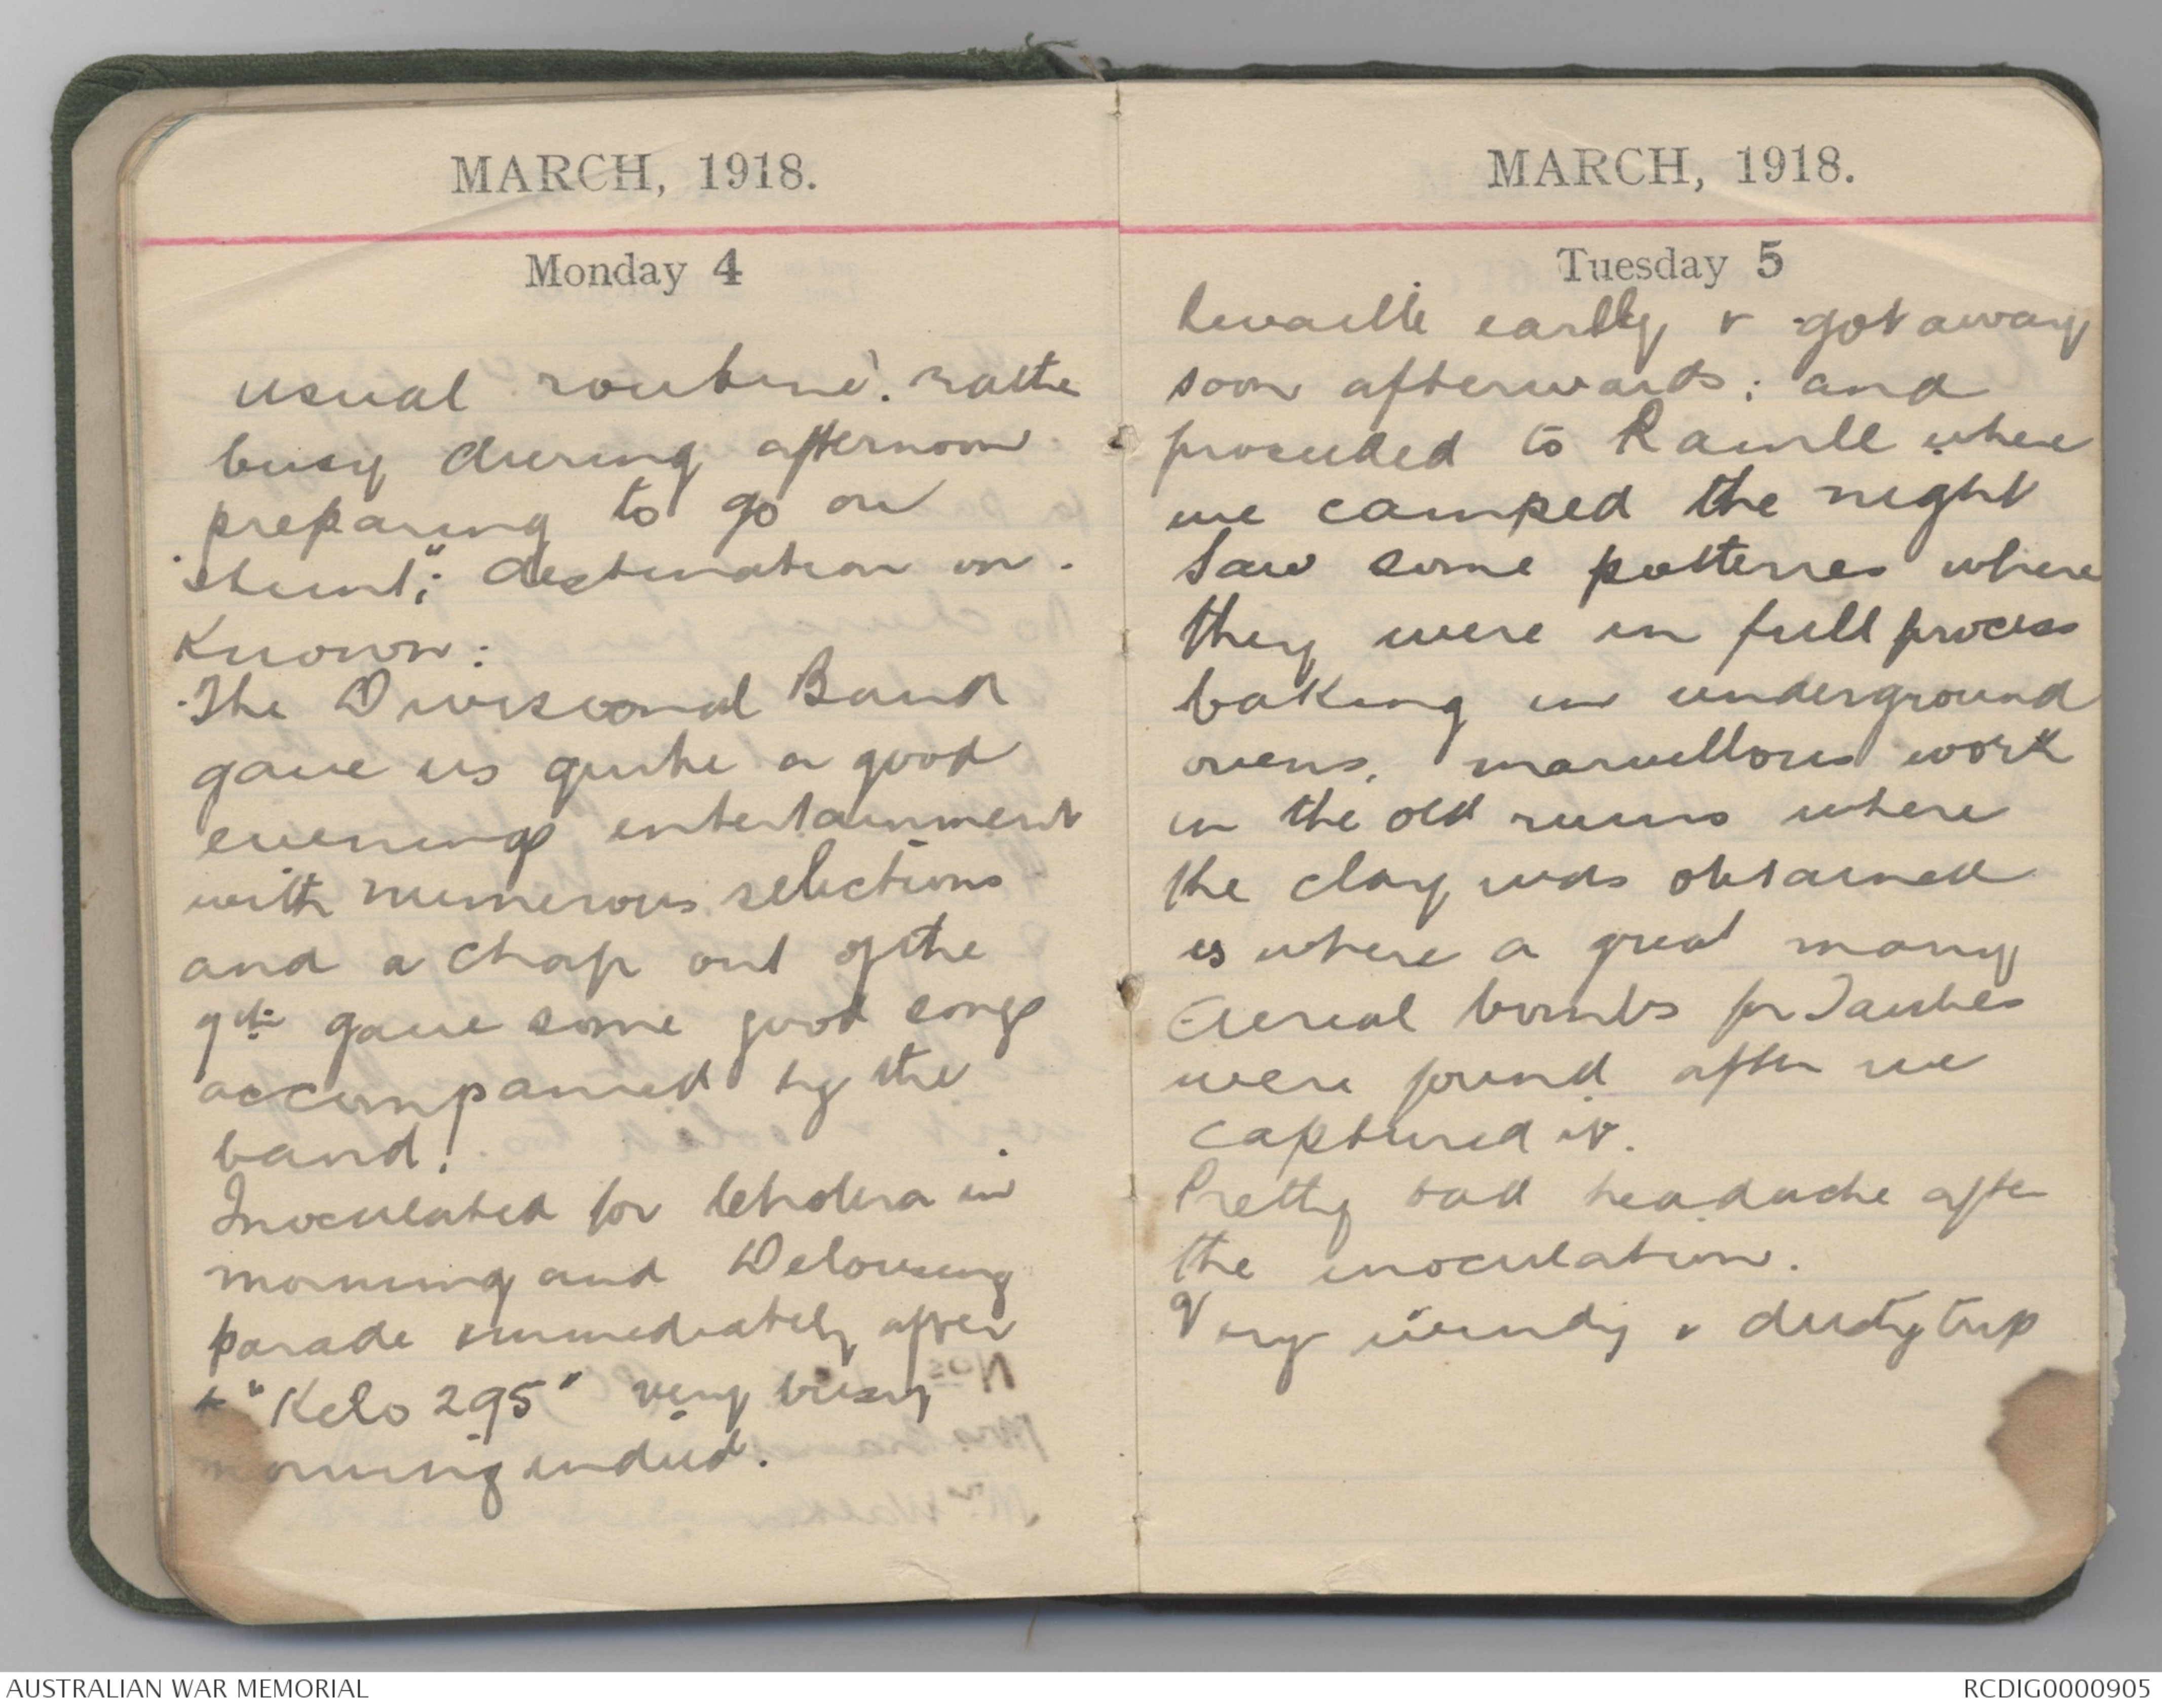 MARCH, 1918.
Monday 4
usual routine. rathe
busy during afternoon.
preparing to go on
"stunt"; destination un.
Known:
The Divisional Band
gave us quite a good
evenings entertainment
with numerous selections
and a chap out of the
9th gave some good songs
accompanied by the
band!
Inoculated for Cholera in
morning and Delousing
parade immediately after
+ "Kelo 295" very busy
morning indeed.
MARCH, 1918.
Tuesday 5
Revaille early & got away
soon afterwards; and
proceeded to Ramlle where
we camped the night
Saw some potteries where
they were in full process
baking in underground
ovens, marvellous work
in the old ruins where
the clay was obtained
is where a great many
Aerial bombs for Taubes
were found after we
captured it.
Pretty bad headache after
the inoculation.
Very windy & dusty trip
AUSTRALIAN WAR MEMORIAL
RCDIG0000905